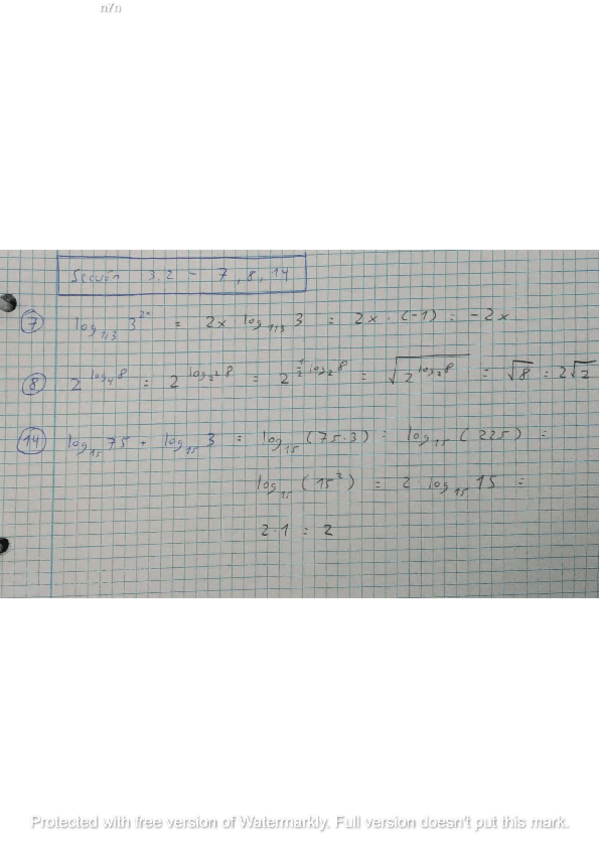 n7n
Sección 3.2 - 7, 8, 14
7 log_{1/3} 3^{2x} = 2x · log_{1/3} 3 = 2x · (-1) = -2x
8 2^{log_4 8} = 2^{log_{2^2} 8} = 2^{\frac{1}{2} log_2 8} = \sqrt{2^{log_2 8}} = \sqrt{8} = 2\sqrt{2}
14 log_{15} 75 + log_{15} 3 = log_{15} (75·3) = log_{15} (225) =
log_{15} (15^2) = 2 · log_{15} 15 =
2·1 = 2
Protected with free version of Watermarkly. Full version doesn't put this mark.